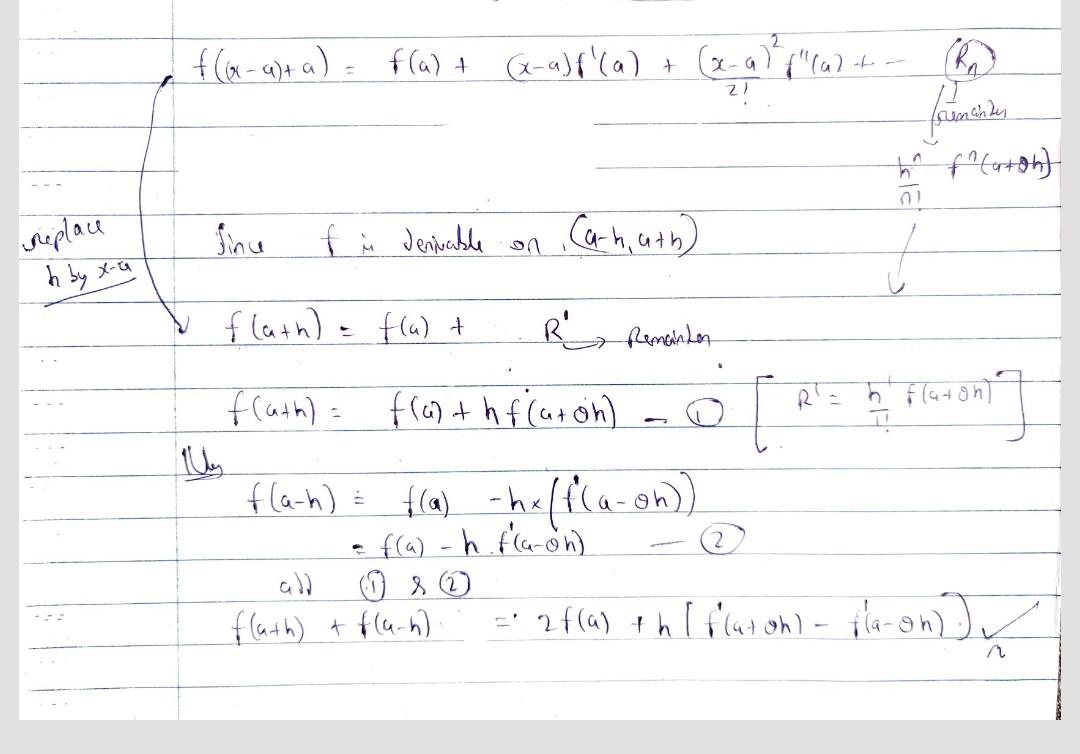 f((x-a)+a) = f(a) + (x-a)f'(a) + (x-a)²/2! f''(a) + - Rn
remainder
hⁿ/n! fⁿ(a+θh)
replace
h by x-a
Since f is derivable on (a-h, a+h)
f(a+h) = f(a) + R' → Remainder
f(a+h) = f(a) + h f'(a+θh) - ① [R' = h'/1! f(a+θh)]
llly
f(a-h) = f(a) -h×(f'(a-θh))
= f(a) - h.f'(a-θh) - ②
add ① & ②
f(a+h) + f(a-h) = 2f(a) + h[f'(a+θh) - f'(a-θh)]